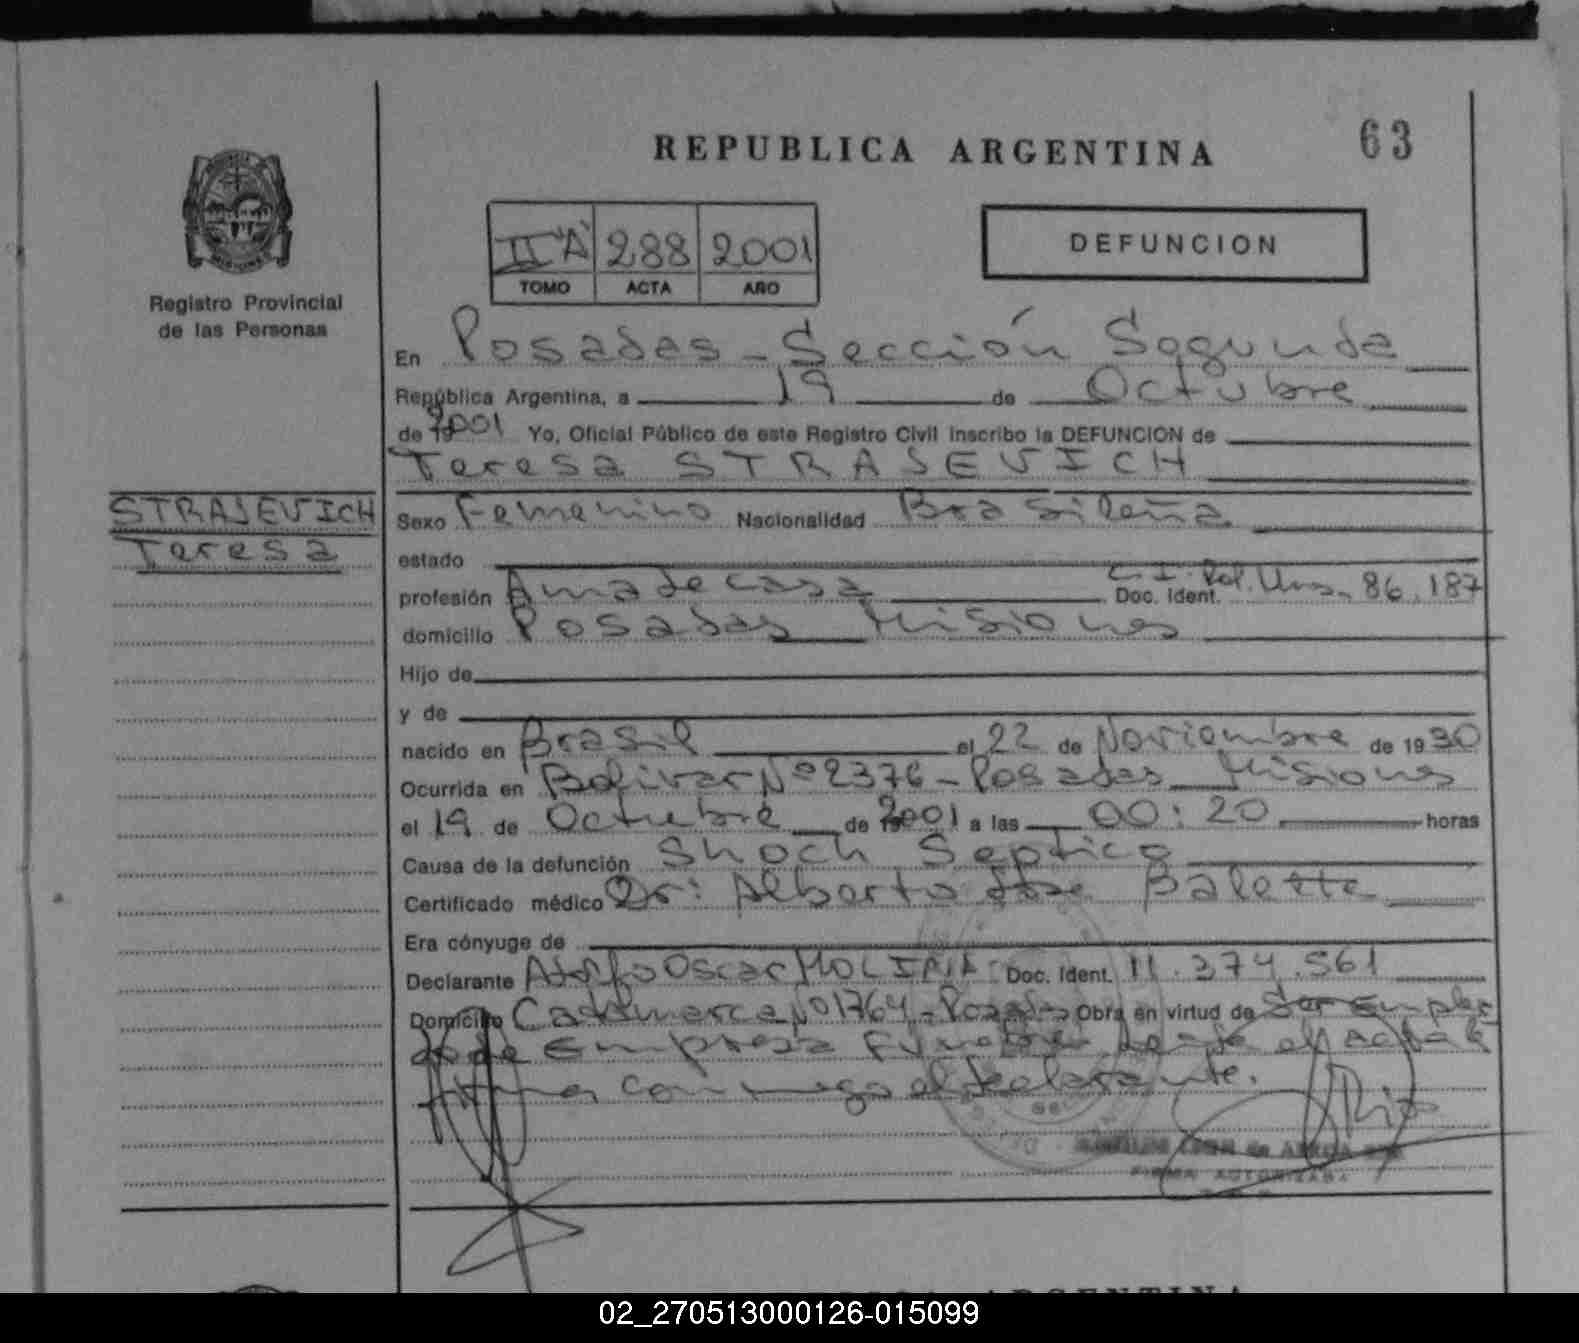 REPUBLICA ARGENTINA
63
II "A" 288 2001
TOMO ACTA AÑO
DEFUNCION
Registro Provincial
de las Personas
En Posadas - Sección Segunda
República Argentina, a 19 de Octubre
de 2001 Yo, Oficial Público de este Registro Civil inscribo la DEFUNCION de
Teresa STRASEVICH
STRASEVICH
Teresa
Sexo Femenino Nacionalidad Brasileña
estado
profesión Ama de casa Doc. Ident. C.I. Pol. Mnes. 86.187
domicilio Posadas Misiones
Hijo de
y de
nacido en Brasil el 22 de Noviembre de 1930
Ocurrida en Bolivar Nº 2376 - Posadas Misiones
el 19 de Octubre de 2001 a las 00:20 horas
Causa de la defunción Shock Septico
Certificado médico Dr: Alberto Jose
Era cónyuge de
Declarante Adolfo Oscar MOLINA Doc. Ident. 11.374.561
Domicilio Catamarca Nº 1764 - Posadas Obra en virtud de Ser Emplea
do de Empresa Funebre Leida el Acta
firma conmigo el declarante.
FIRMA AUTORIZADA
REPUBLICA ARGENTINA
02_270513000126-015099